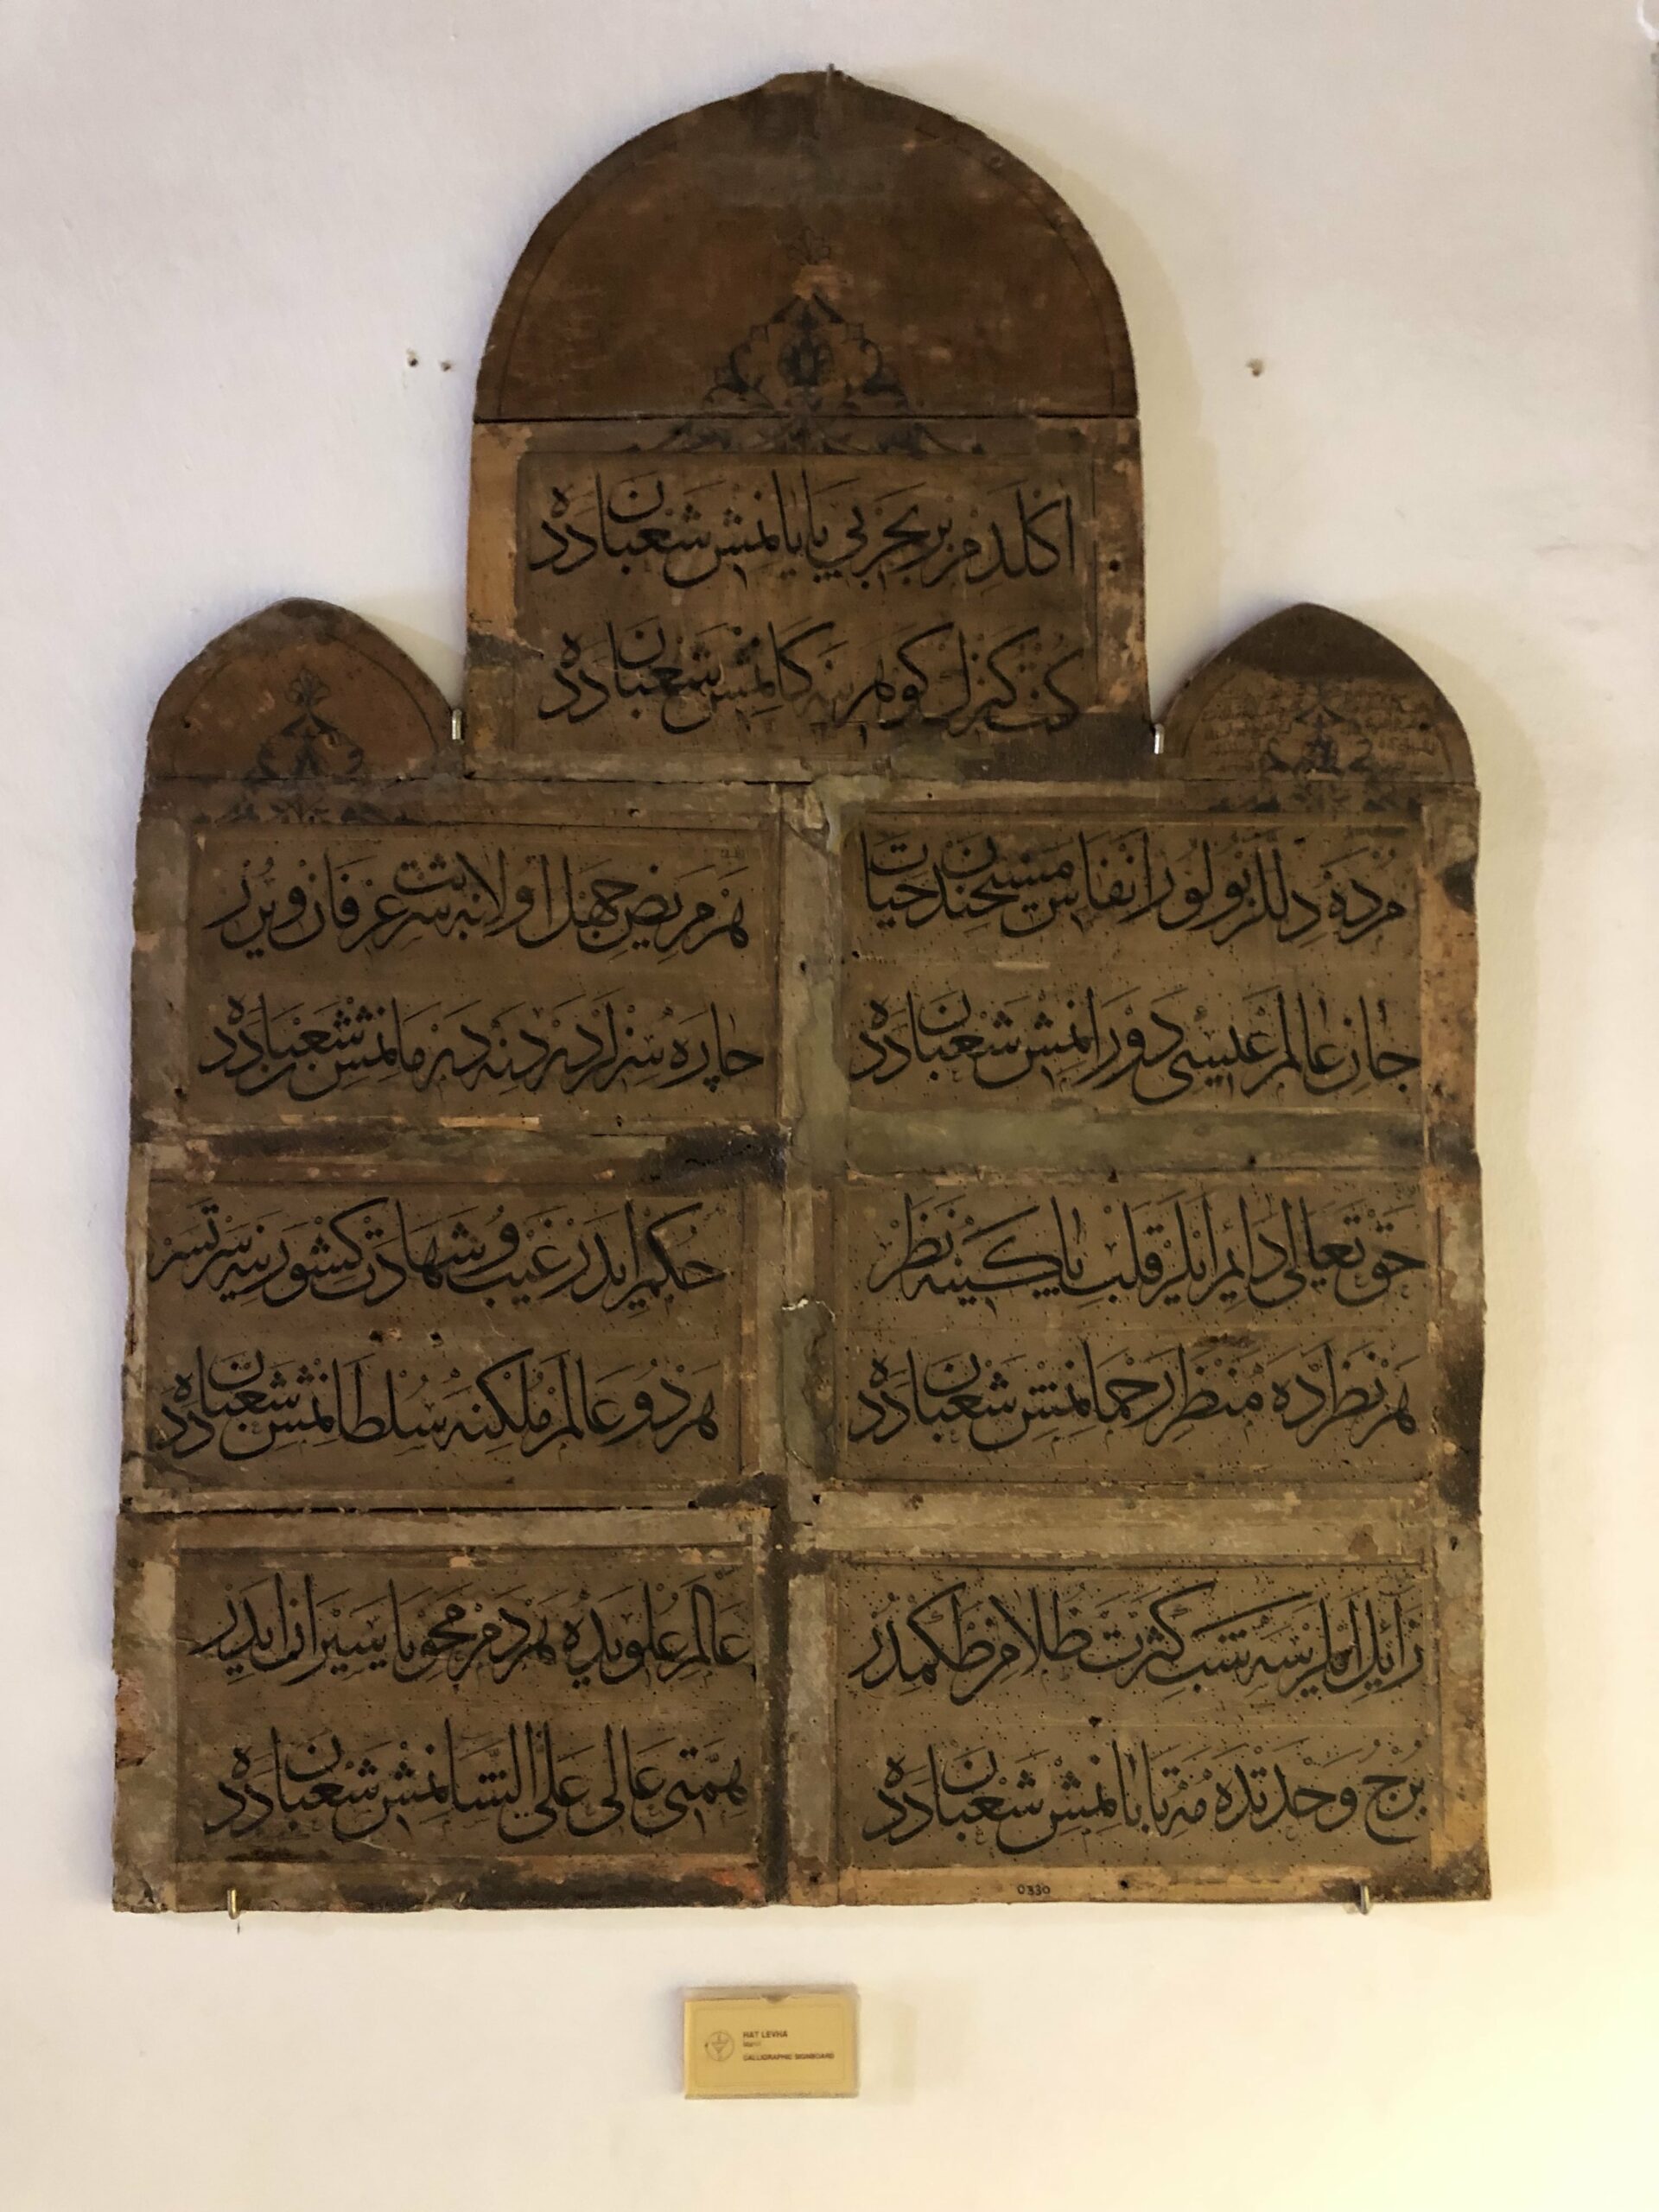 اكلدم بر بحر بي پايانمش شعبان دده
كنت كنزك كوهرينه كانمش شعبان دده
مرده دللر بولور انفاس مسيحندن حيات
جان عالم عيسى دورانمش شعبان دده
هر مريض جهل اولانه شربت عرفان ويرر
چاره سز لر دردنه درمانمش شعبان دده
حق تعالى دائم ايلر قلب پاكينه نظر
هر نظرده منظر رحمانمش شعبان دده
حكم ايدر غيب و شهادت كشورينه سرتسر
هر دو عالم ملكنه سلطانمش شعبان دده
زائل ايلر سه شب كثرت ظلامن طكمدر
برج وحدتده مه تابانمش شعبان دده
عالم علويده هر دم محو يا سيران ايدر
همتى عالى على الشانمش شعبان دده
0330
HAT LEVHA
CALLIGRAPHIC SIGNBOARD